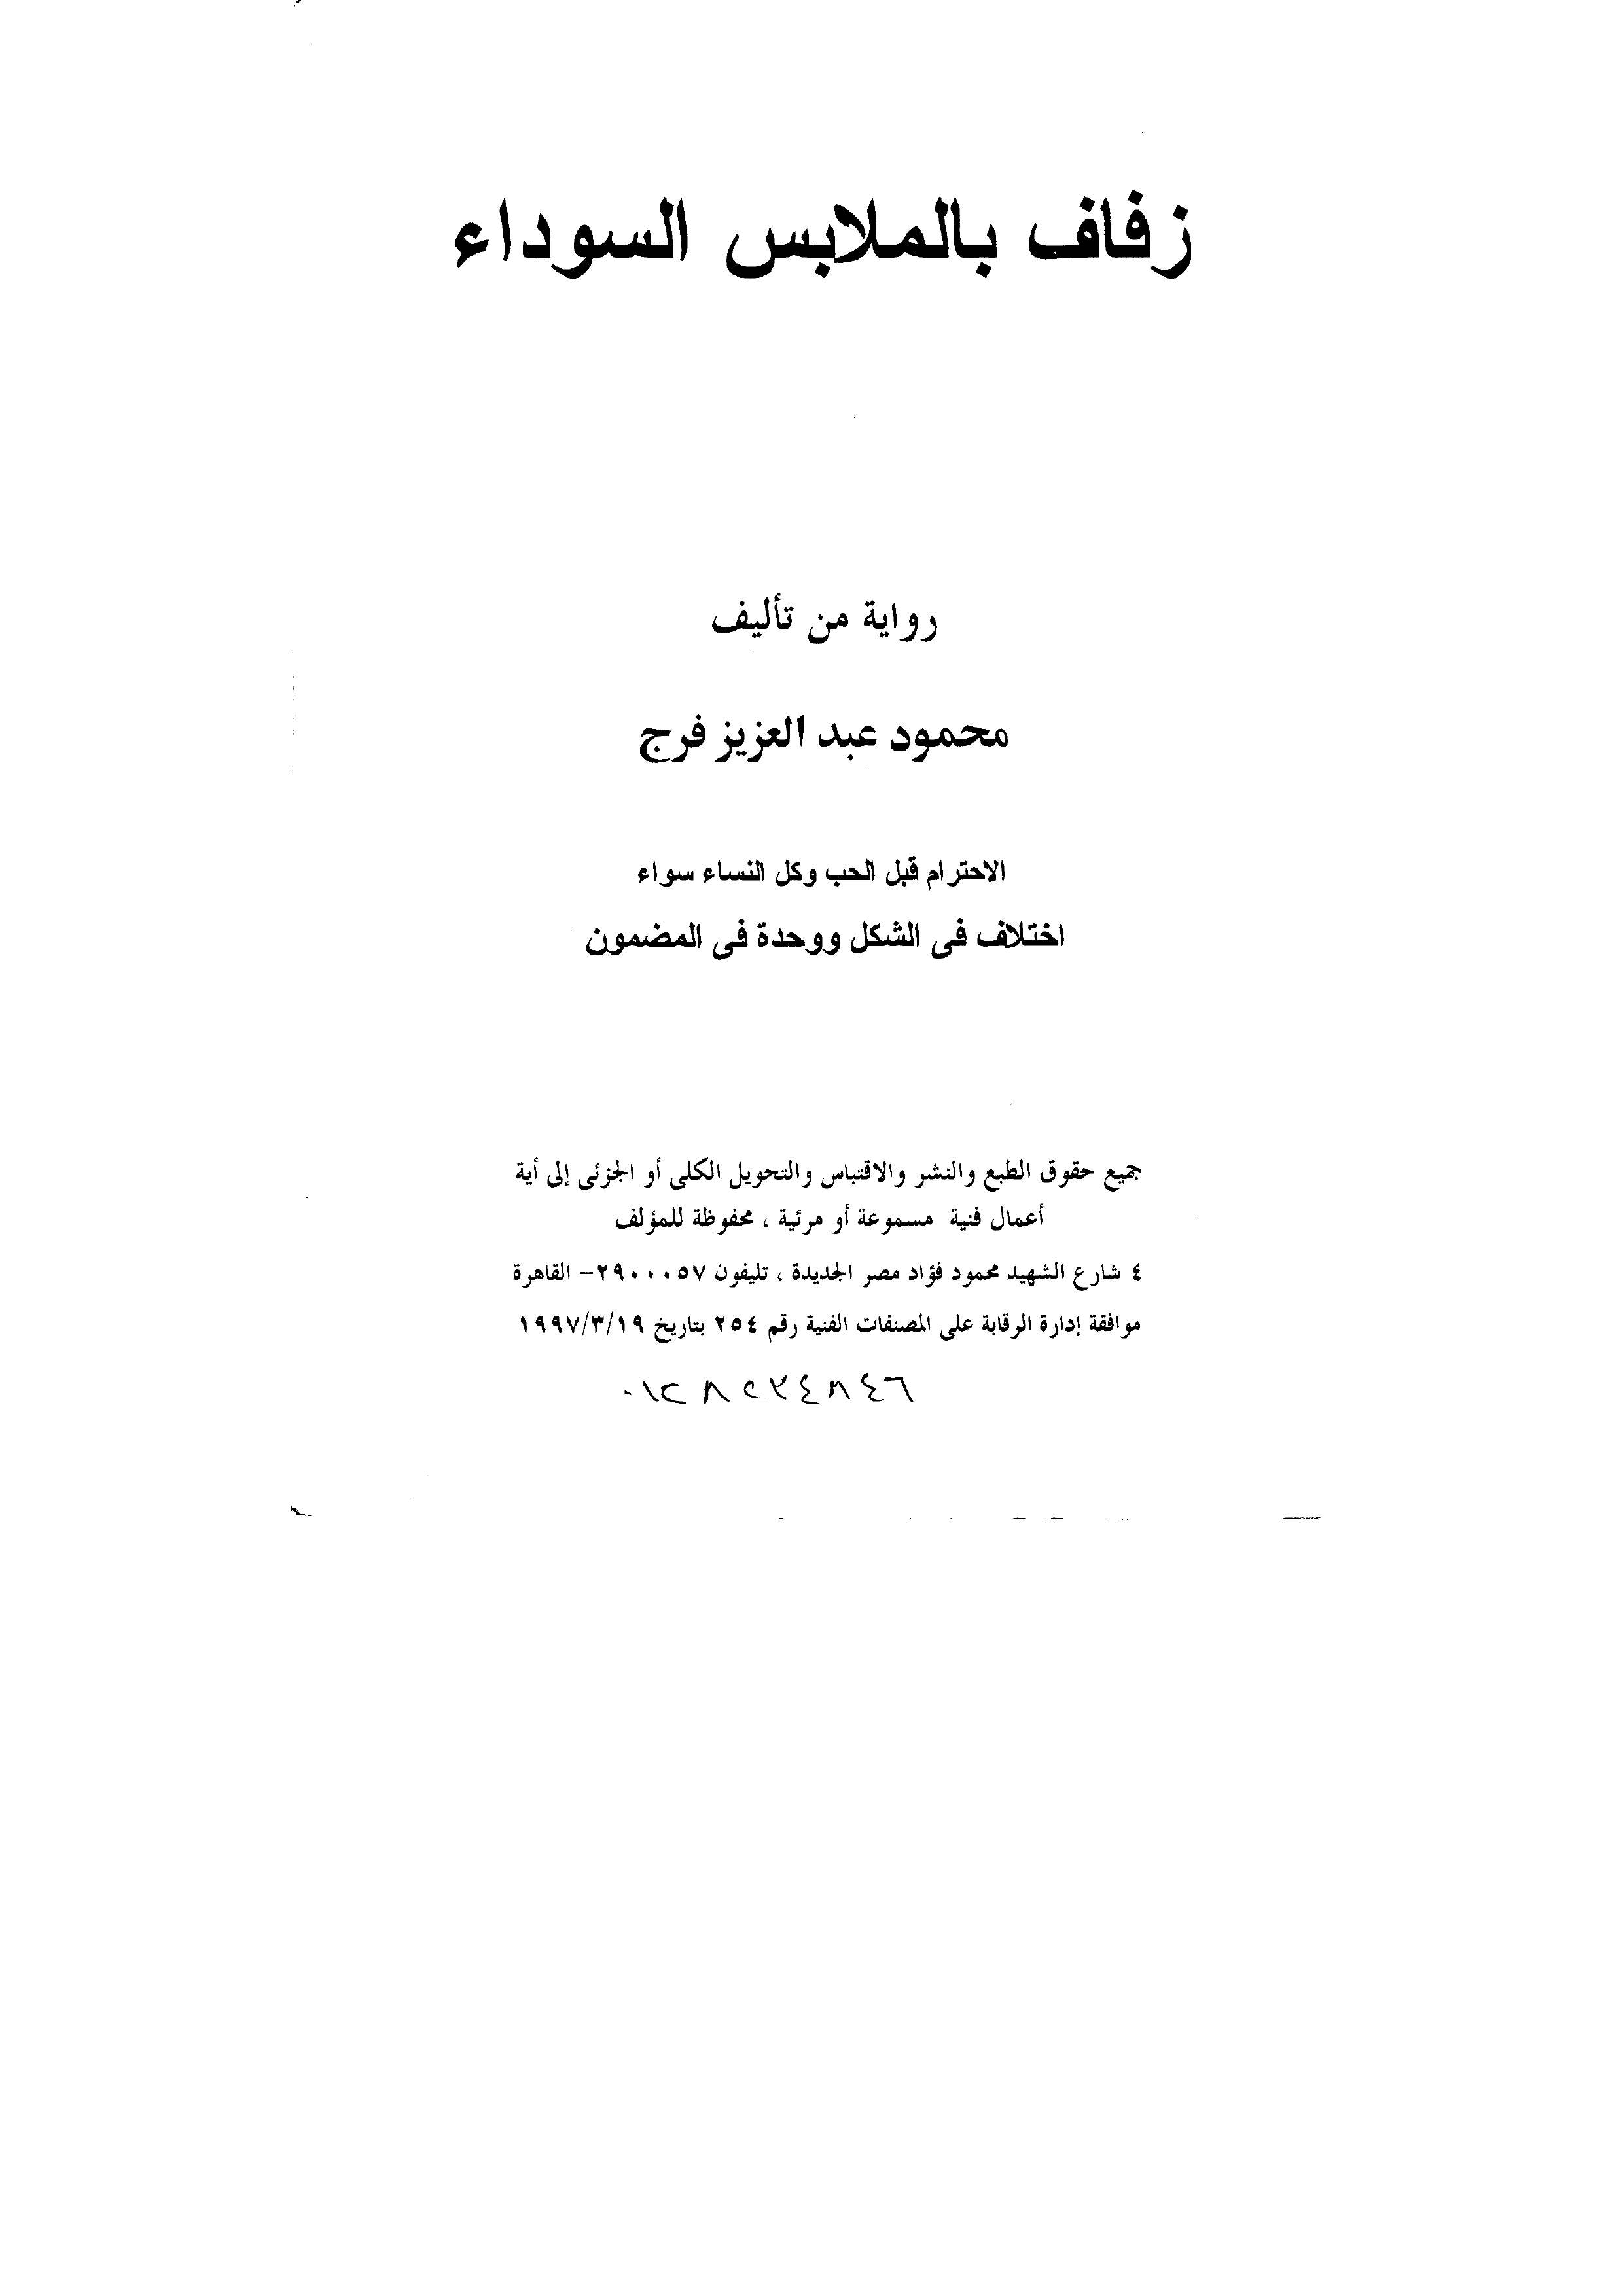 زفاف بالملابس السوداء
رواية من تأليف
محمود عبد العزيز فرج
الاحترام قبل الحب وكل النساء سواء
اختلاف فى الشكل ووحدة فى المضمون
جميع حقوق الطبع والنشر والاقتباس والتحويل الكلى أو الجزئى إلى أية
أعمال فنية مسموعة أو مرئية ، محفوظة للمؤلف
٤ شارع الشهيد محمود فؤاد مصر الجديدة ، تليفون ٢٩٠٠٠٥٧- القاهرة
موافقة إدارة الرقابة على المصنفات الفنية رقم ٢٥٤ بتاريخ ١٩٩٧/٣/١٩